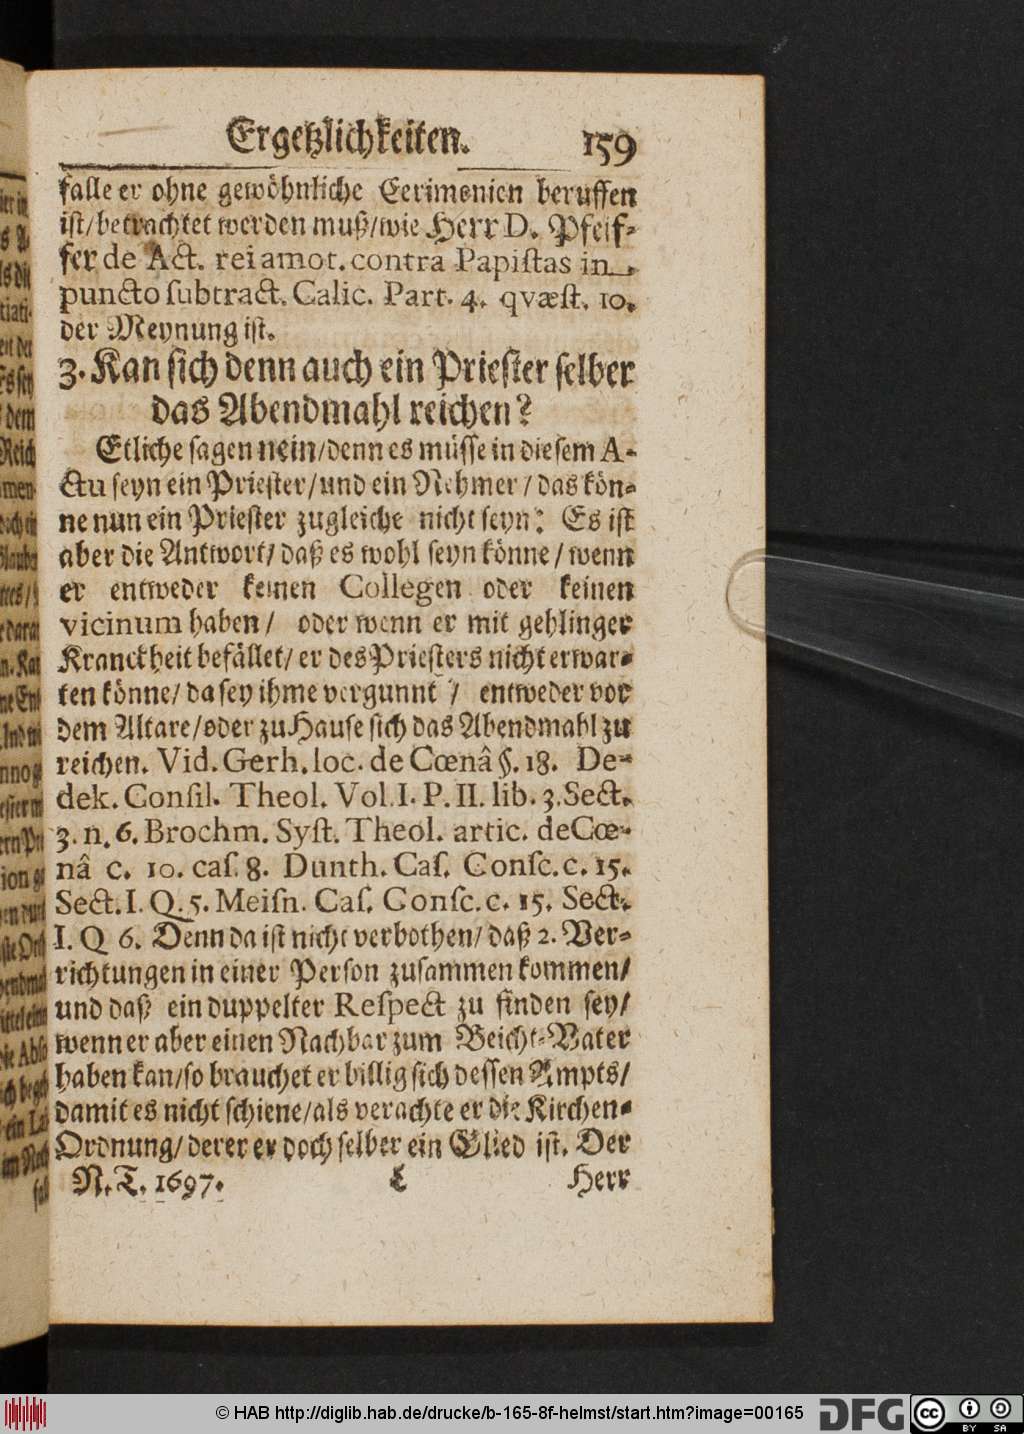 Ergetzlichkeiten. 159
falle er ohne gewöhnliche Cerimonien beruffen
ist/ betrachtet werden muß/ wie Herr D. Pfeif-
fer de Act. rei amot. contra Papistas in
puncto subtract. Calic. Part. 4. qvæst. 10.
der Meynung ist.
3. Kan sich denn auch ein Priester selber
das Abendmahl reichen?
Etliche sagen nein/ denn es müsse in diesem A-
ctu seyn ein Priester/ und ein Nehmer/ das kön-
ne nun ein Priester zugleiche nicht seyn: Es ist
aber die Antwort/ daß es wohl seyn könne/ wenn
er entweder keinen Collegen oder keinen
vicinum haben/ oder wenn er mit gehlinger
Kranckheit befället/ er des Priesters nicht erwar-
ten könne/ da sey ihme vergunnt/ entweder vor
dem Altare/ oder zu Hause sich das Abendmahl zu
reichen. Vid. Gerh. loc. de Cœnâ §. 18. De-
dek. Consil. Theol. Vol. I. P. II. lib. 3. Sect.
3. n. 6. Brochm. Syst. Theol. artic. de Cœ-
nâ c. 10. cas. 8. Dunth. Cas. Consc. c. 15.
Sect. I. Q. 5. Meisn. Cas. Consc. c. 15. Sect.
I. Q 6. Denn da ist nicht verbothen/ daß 2. Ver-
richtungen in einer Person zusammen kommen/
und daß ein duppelter Respect zu finden sey/
wenn er aber einen Nachbar zum Beicht-Vater
haben kan/ so brauchet er billig sich dessen Ampts/
damit es nicht schiene/ als verachte er die Kirchen-
Ordnung/ derer er doch selber ein Glied ist. Der
N. T. 1697. L Herr
© HAB http://diglib.hab.de/drucke/b-165-8f-helmst/start.htm?image=00165 DFG cc BY SA